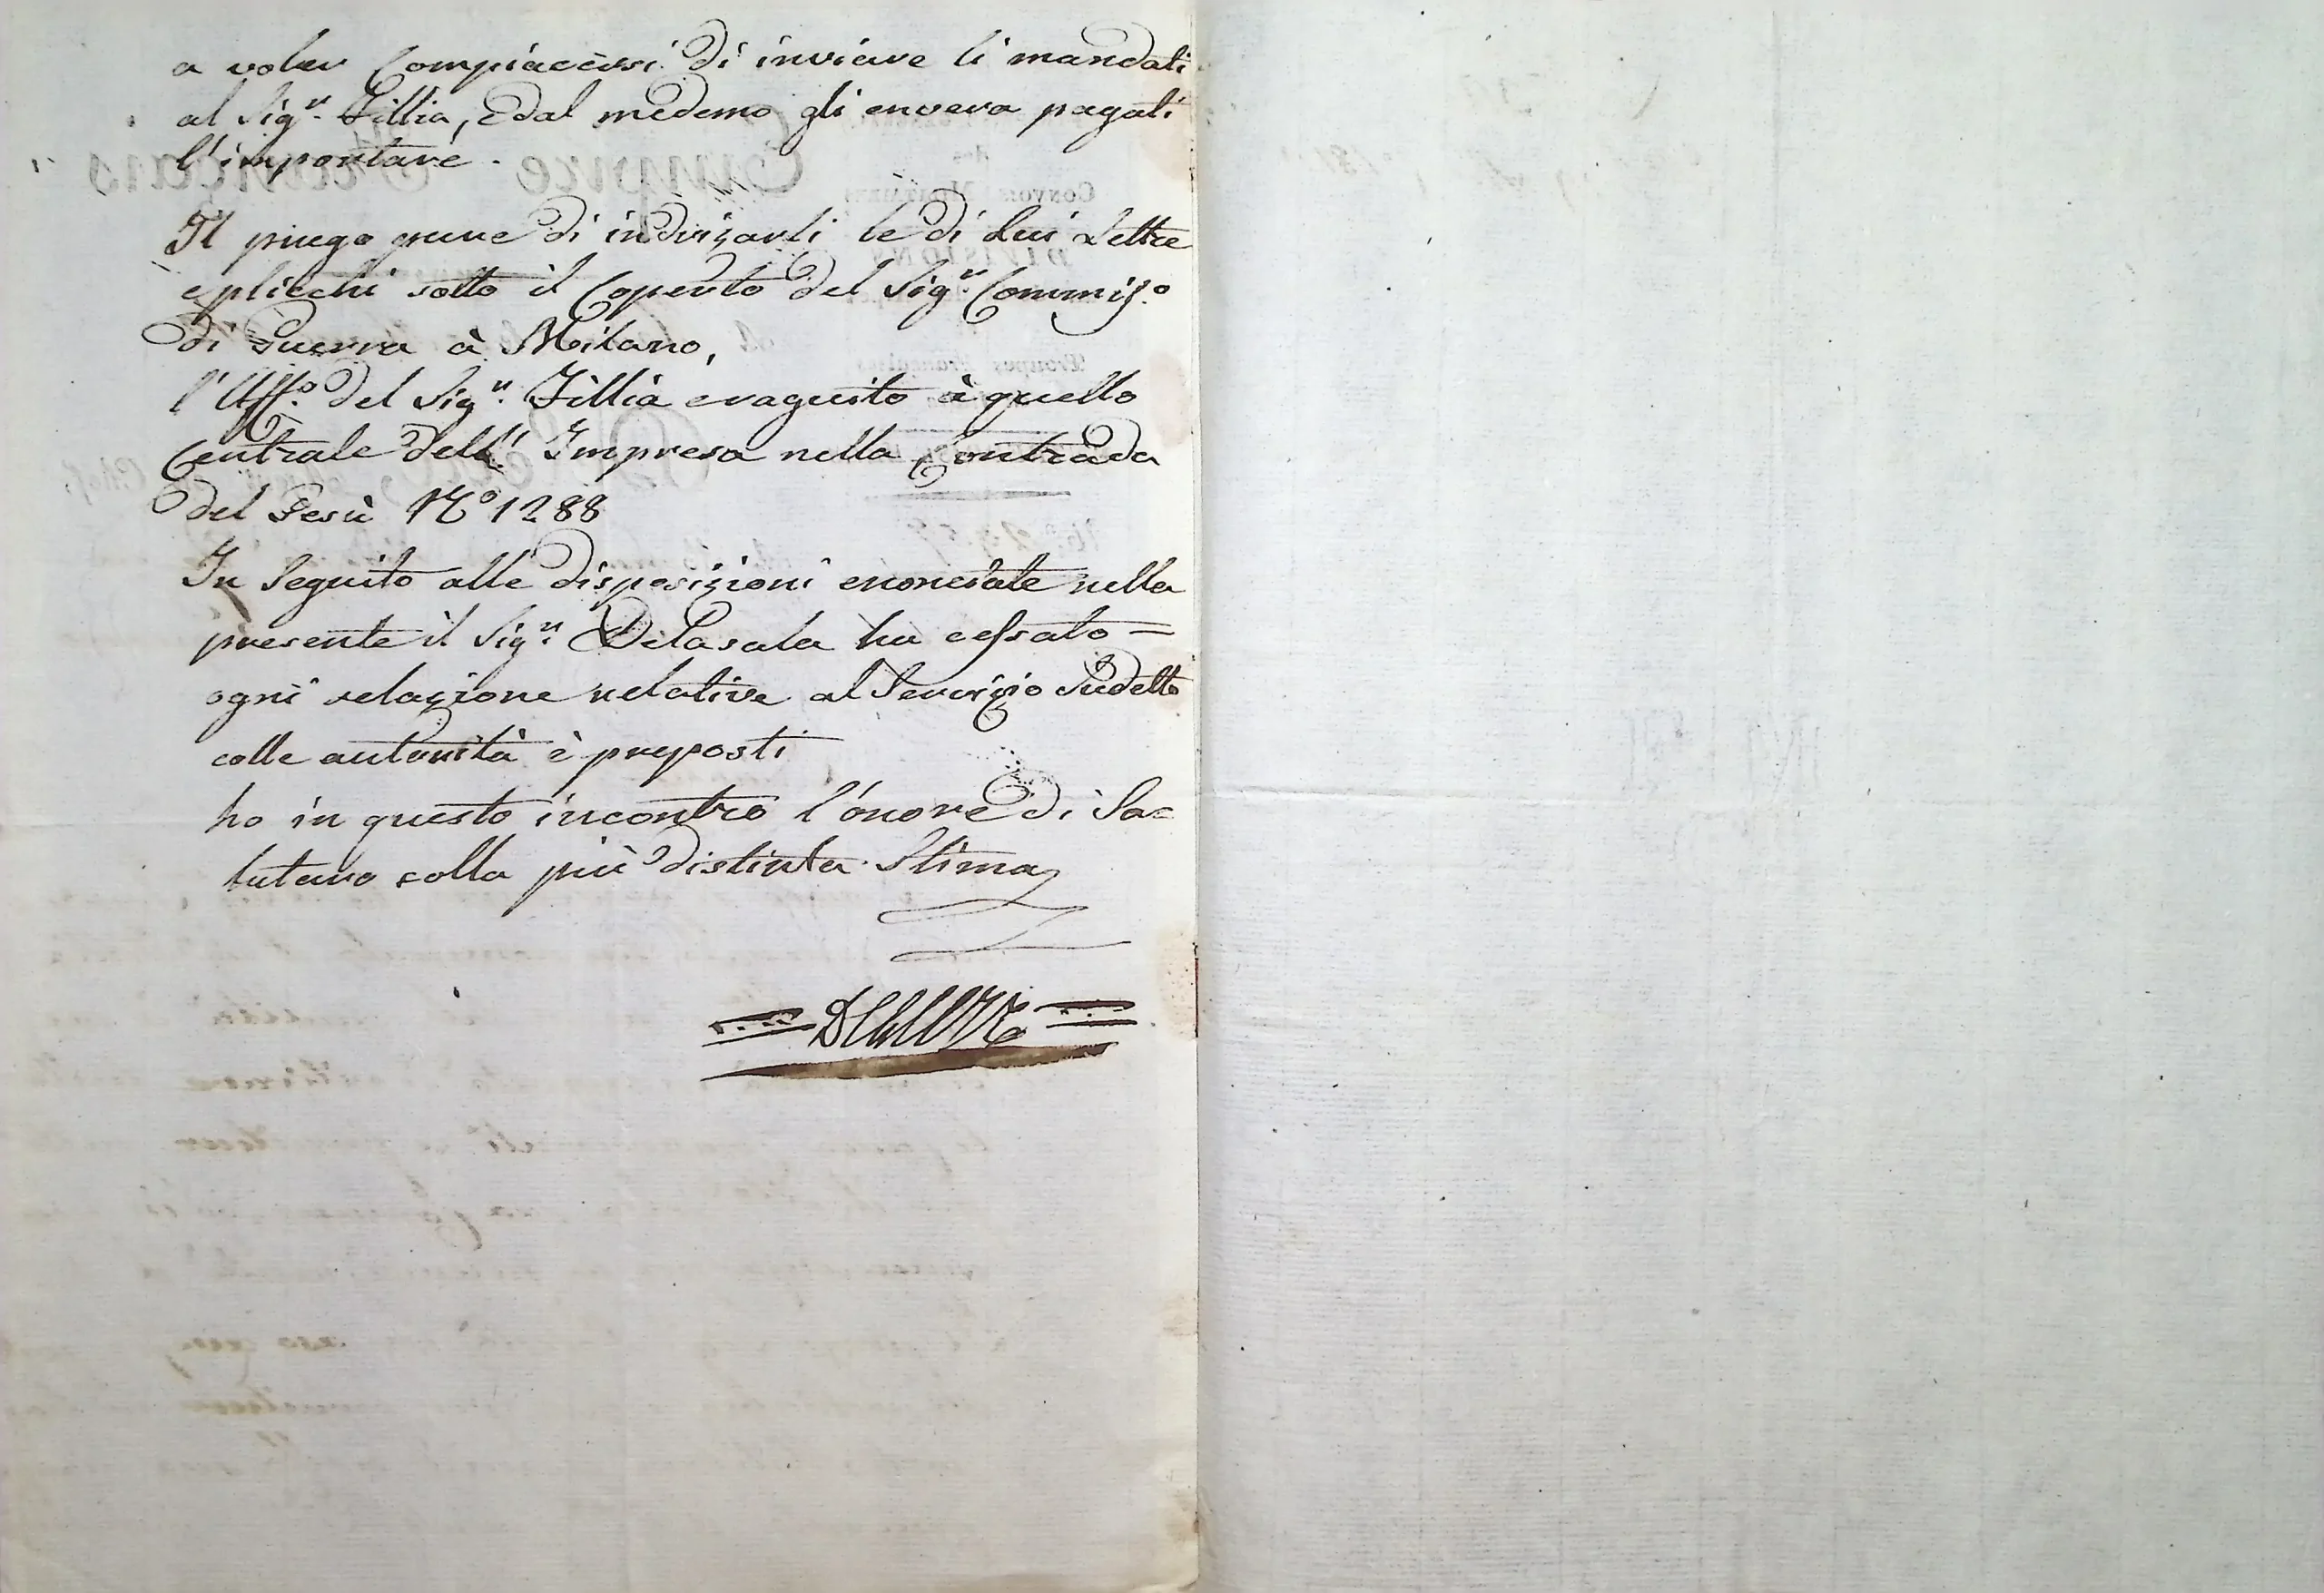 a voler Compiacersi di inviare li mandati
al Sig.r Fillia, e dal medemo gli enverà pagati
l'importare.
Il priego pure di indirizarli le di Lui Lettre
e plicchi sotto il Coperto del Sig.r Commiss.o
di Guerra à Milano,
l'Uff.o del Sig.r Fillia evaguito à quello
Centrale dell' Impresa nella Contrada
del Gesù N.o 1288
In Seguito alle disposizioni enonciate nella
presente il Sig.r Delasala ha cessato =
ogni relazione relative al Servizio Sudetto
colle autorità è preposti
ho in questo incontro l'onore di Sa=
lutarvo colla più distinta Stima